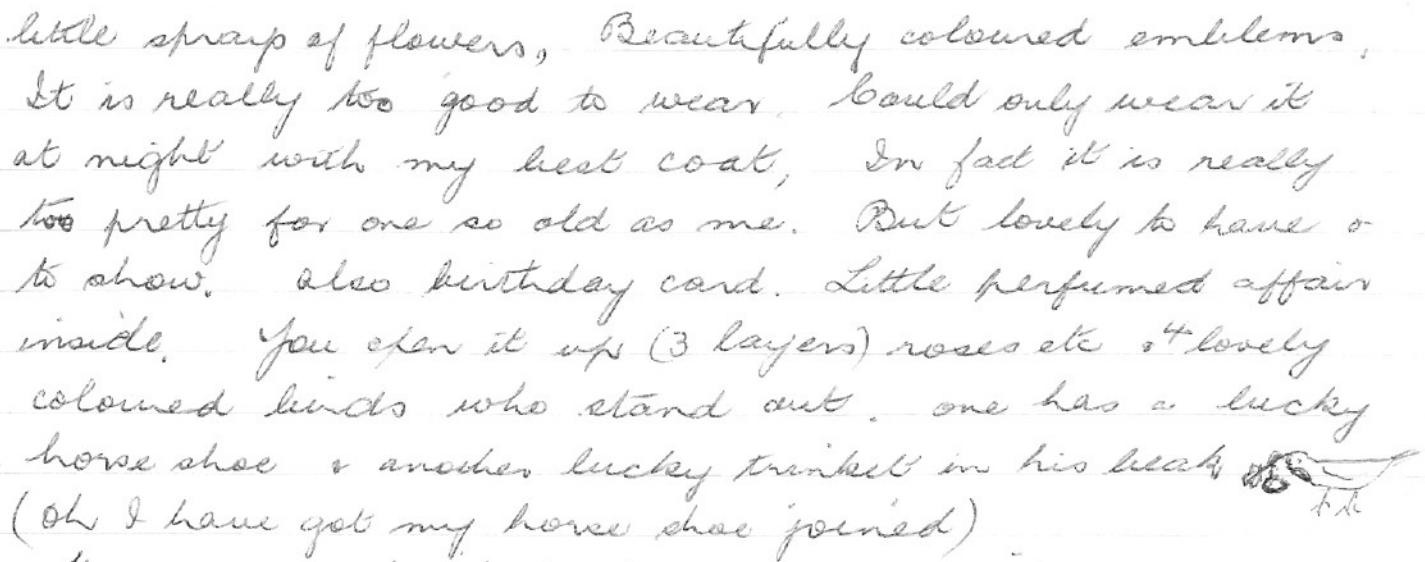 little sprays of flowers, Beautifully coloured emblems,
It is really too good to wear. Could only wear it
at night with my best coat, In fact it is really
too pretty for one so old as me. But lovely to have &
to show. also birthday card. Little perfumed affair
inside. You open it up (3 layers) roses etc & 4 lovely
coloured birds who stand out. one has a lucky
horse shoe & another lucky trinket in his beak
(oh I have got my horse shoe joined)